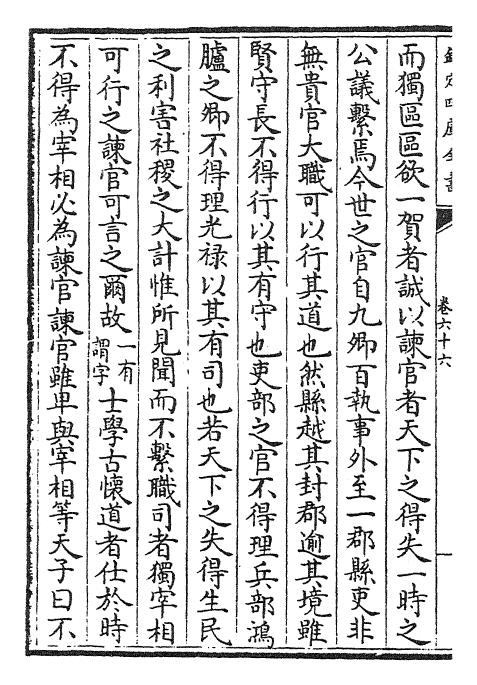 欽定四庫全書
卷六十六
而獨區區欲一賀者誠以諫官者天下之得失一時之
公議繫焉今世之官自九卿百執事外至一郡縣吏非
無貴官大職可以行其道也然縣越其封郡逾其境雖
賢守長不得行以其有守也吏部之官不得理兵部鴻
臚之卿不得理光禄以其有司也若天下之失得生民
之利害社稷之大計惟所見聞而不繫職司者獨宰相
可行之諫官可言之爾故一有謂字士學古懷道者仕於時
不得為宰相必為諫官諫官雖卑與宰相等天子曰不